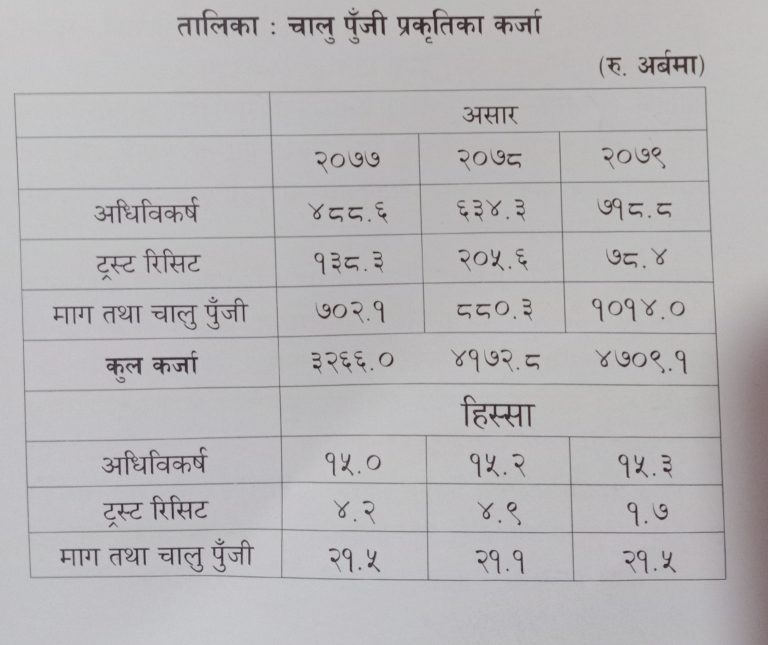 तालिका : चालु पुँजी प्रकृतिका कर्जा
(रु. अर्बमा)
असार
२०७७ २०७८ २०७९
अधिविकर्ष ४८८.६ ६३४.३ ७१८.८
ट्रस्ट रिसिट १३८.३ २०५.६ ७८.४
माग तथा चालु पुँजी ७०२.१ ८८०.३ १०१४.०
कुल कर्जा ३२६६.० ४१७२.८ ४७०९.१
हिस्सा
अधिविकर्ष १५.० १५.२ १५.३
ट्रस्ट रिसिट ४.२ ४.९ १.७
माग तथा चालु पुँजी २१.५ २१.१ २१.५